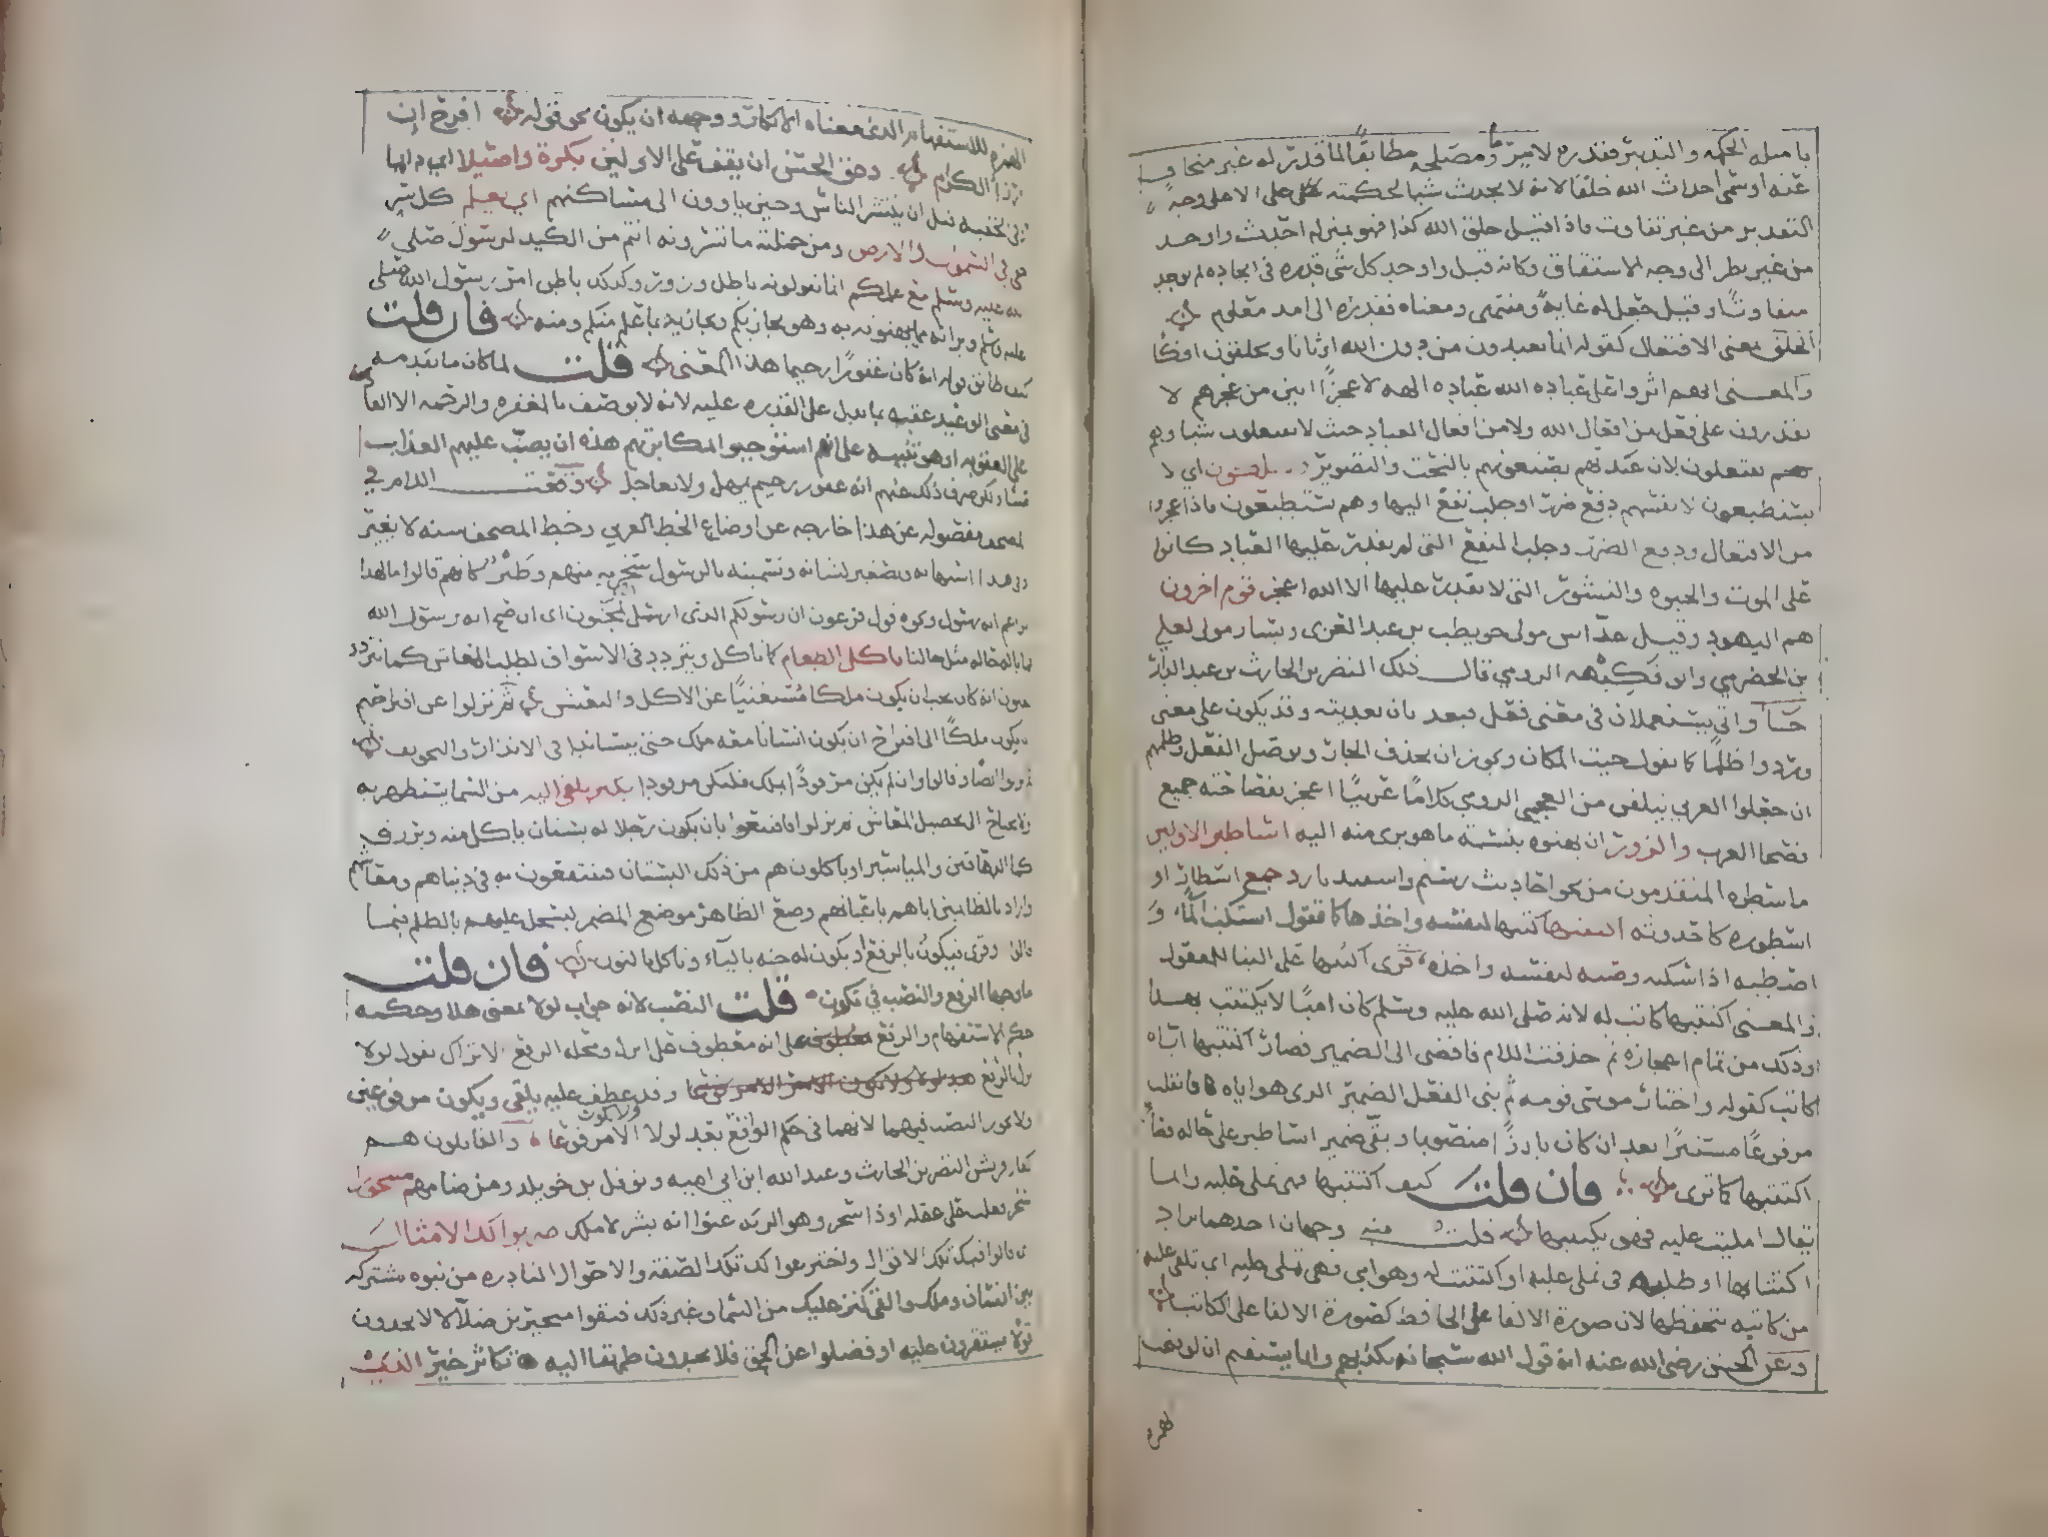 بامثله الحكمه والتدبير فقدره لامر ما ومصلحه مطابقا لما قدر له غير متجاف
عنه او سمى احداث الله خلقا لانه لا يحدث شيا لحكمته على الا على وجه
التقدير من غير تفاوت فاذا قيل خلق الله كذا فهو بمنزله احدث واوجد
من غير نظر الى وجه الاشتقاق وكانه قيل واوجد كل شى فقدره فى ايجاده لم يوجد
متفاوتا وقيل فجعل له غاية ومنتهى ومعناه فقدره الى امد معلوم
الخلق بمعنى الافتعال كقوله انما تعبدون من دون الله اوثانا وتخلقون افكا
والمعنى انهم اثروا على عباده الله عباده الهه لا عجز ابين من عجزهم لا
يقدرون على فعل من افعال الله ولا من افعال العباد حيث لا يفتعلون شيا وهم
يفتعلون لان عبدتهم يصنعونهم بالنحت والتصوير ولا يملكون اى لا
يستطيعون لانفسهم دفع ضرر او جلب نفع اليها وهم يستطيعون فاذا عجزوا
من الافتعال ودفع الضرر وجلب النفع التى لم يقدر عليها العباد كانوا
على الموت والحيوه والنشور التى لا يقدر عليها الا الله اعجز قوم اخرون
هم اليهود وقيل عداس مولى حويطب بن عبد العزى ويسار مولى لعلى
بن الحضرمي وابو فكيهه الرومي قال ذلك النضر بن الحارث بن عبد الدار
جا واتي يستعملان فى معنى فعل فيعد يان تعديته وقد يكون على معنى
وردوا ظلما كما تقول جيت المكان ويجوز ان يحذف الجار ويوصل الفعل وظلمهم
ان جعلوا العربي يتلقن من العجمي الرومي كلاما عربيا اعجز بفصاحته جميع
فصحا العرب والزور ان بهتوه بنسبته ما هو برى منه اليه اساطير الاولين
ما سطره المتقدمون من نحو احاديث رستم واسفنديار جمع اسطار او
اسطوره كاحدوثه اكتتبها كتبها لنفسه واخذها كما تقول استكب الما و
اصطبه اذا سكبه وصبه لنفسه واخذه قرى اكتتبها على البنا للمفعول
والمعنى اكتتبها كاتب له لانه صلى الله عليه وسلم كان اميا لا يكتب بيده
وذلك من تمام اعجازه ثم حذفت اللام فافضى الى الضمير فصار اكتتبها اياه
كاتب كقوله واختار موسى قومه ثم بنى الفعل للضمير الذى هو اياه فانقلب
مرفوعا مستترا بعد ان كان بارزا منصوبا وبقى ضمير اساطير على حاله فصار
اكتتبها كما ترى فان قلت كيف اكتتبها فهى تملى عليه وانما
يقال امليت عليه فهو يكتبها قلت فيه وجهان احدهما اراد
اكتتابها او طلبه فهى تملى عليه او اكتتبت له وهو امي فهي تملى عليه اي تلقى عليه
من كاتبه يتحفظها لان صورة الالقا على الحافظ كصورة الالقا على الكاتب
وعن الحسن رضى الله عنه انه قول الله سبحانه يكذبهم وانما يستقيم ان لو فتحت
الهمزه
الهمزه للاستفهام الذى معناه الانكار ووجهه ان يكون نحو قوله افرح ان
ارزا الكرام وحق الحسن ان يقف على الاولين بكرة واصيلا اي دايما
او فى الخفيه قبل ان ينتشر الناس وحين ياوون الى مساكنهم اي يعلم كل سر
خفى فى السموات والارض ومن جملته ما تسرونه انتم من الكيد لرسول صلى
الله عليه وسلم مع علمكم ان ما تقولونه باطل وزور وكذلك باطن امر رسول الله صلى
الله عليه وسلم وبراته مما يبهتونه به وهو يجازيكم ويجازيه بما علم منكم ومنه فان قلت
كيف طابق قوله انه كان غفورا رحيما هذا المعنى قلت لما كان ما تقدمه
فى معنى الوعيد عقبه بما يدل على القدره عليه لانه لا يوصف بالمغفره والرحمه الا القادر
على العقوبه او هو تنبيه على انهم استوجبوا لمكابرتهم هذه ان يصب عليهم العذاب
صبا ولكن صرف ذلك عنهم انه غفور رحيم يمهل ولا يعاجل وقعت اللام في
المصحف مفصوله عن هذا خارجه عن اوضاع الخط العربي وخط المصحف سنه لا يغير
وفى هذا استهانه وتصغير لشانه وتسميته بالرسول سخريه منهم وطنز كانهم قالوا ما لهذا
الزاعم انه رسول ونحوه قول فرعون ان رسولكم الذى ارسل اليكم لمجنون اى ان صح انه رسول الله
فما باله حاله مثل حالنا ياكل الطعام كما ناكل ويتردد فى الاسواق لطلب المعاش كما نتردد
يعنون انه كان يجب ان يكون ملكا مستغنيا عن الاكل والتعيش ثم نزلوا عن اقتراحهم
ان يكون ملكا الى اقتراح ان يكون انسانا معه ملك حتى يتساندا فى الانذار والتخويف
ثم نزلوا ايضا فقالوا وان لم يكن مرفودا بملك فليكن مرفودا بكنز يلقى اليه من السما يستظهر به
ولا يحتاج الى تحصيل المعاش ثم نزلوا فاقتنعوا بان يكون رجلا له بستان ياكل منه ويرتزق
كما الدهاقين والمياسير او ياكلون هم من ذلك البستان فينتفعون به فى دنياهم ومعاشهم
واراد بالظالمين اياهم باعيانهم وضع الظاهر موضع المضمر ليسجل عليهم بالظلم فيما
قالوا وقرى فيكون بالرفع او يكون له جنه بالياء وناكل بالنون فان قلت
ما وجها الرفع والنصب في فيكون قلت النصب لانه جواب لولا بمعنى هلا وحكمه
حكم الاستفهام والرفع على انه معطوف على انزل ومحله الرفع الا تراك تقول لولا
ينزل بالرفع وقد عطف عليه يلقى ويكون مرفوعين
ولا يجوز النصب فيهما لانهما فى حكم الواقع بعد لولا ولا يكون الا مرفوعا والقايلون هم
كفار قريش النضر بن الحارث وعبد الله ابن ابي اميه ونوفل بن خويلد ومن ضامهم مسحورا
سحر فغلب على عقله او ذا سحر وهو الريه عنوا انه بشر لا ملك ضربوا لك الامثال
اى قالوا فيك تلك الاقوال واخترعوا لك تلك الصفه والاحوال النادره من نبوه مشتركه
بين انسان وملك والقى كنز عليك من السما وغير ذلك فبقوا متحيرين ضلالا لا يجدون
قولا يستقرون عليه او فضلوا عن الحق فلا يجدون طريقا اليه تكاثر خير الذى